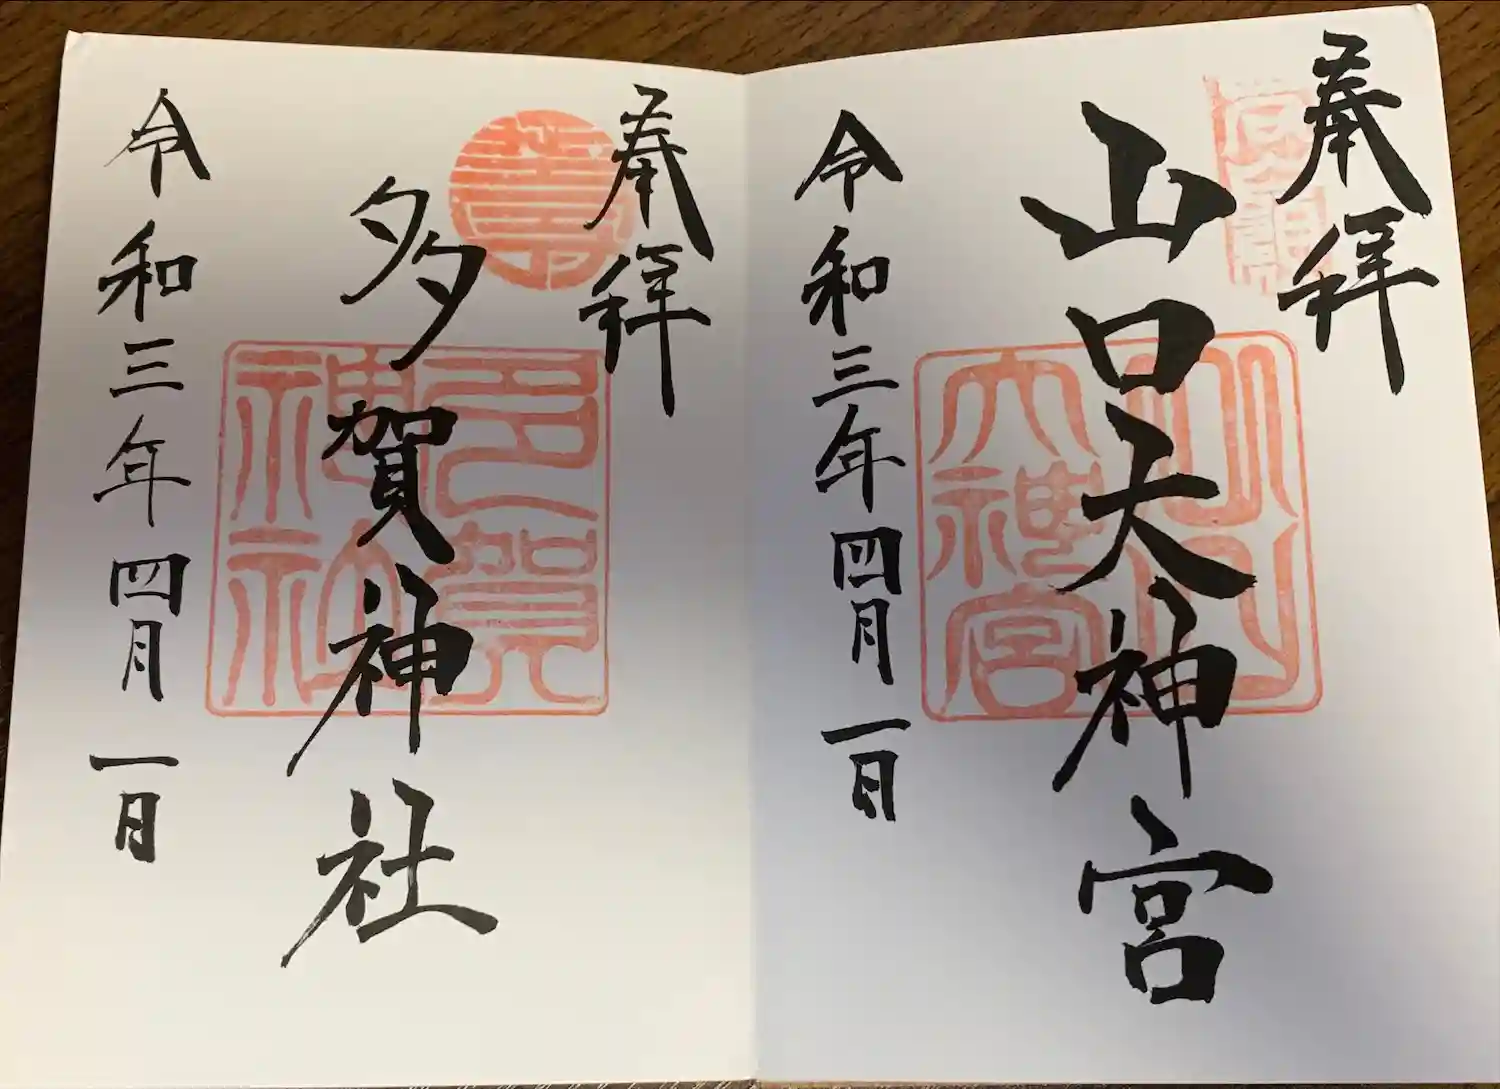 奉拝
山口大神宮
令和三年四月一日
奉拝
多賀神社
令和三年四月一日
多賀
神社